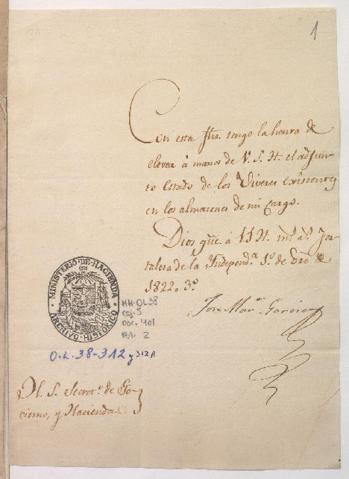 1
Con esta fha. tengo la honra de
elevar á manos de V. S. Y. el adjun-
to Estado de los Viveres existentes
en los almacenes de mi cargo.
Dios gue. á V.S.Y. ms. as. For-
taleza de la Independa. 1o. de Dre. de
1822 = 3o.
José Mar.
MINISTERIO DE HACIENDA
ARCHIVO HISTORICO
MH-OL38
caj. 5
doc. 401
fol. 2
O.L. 38-312 y 312A
Yl. S. Secreto. de Go-
vierno, y Hacienda